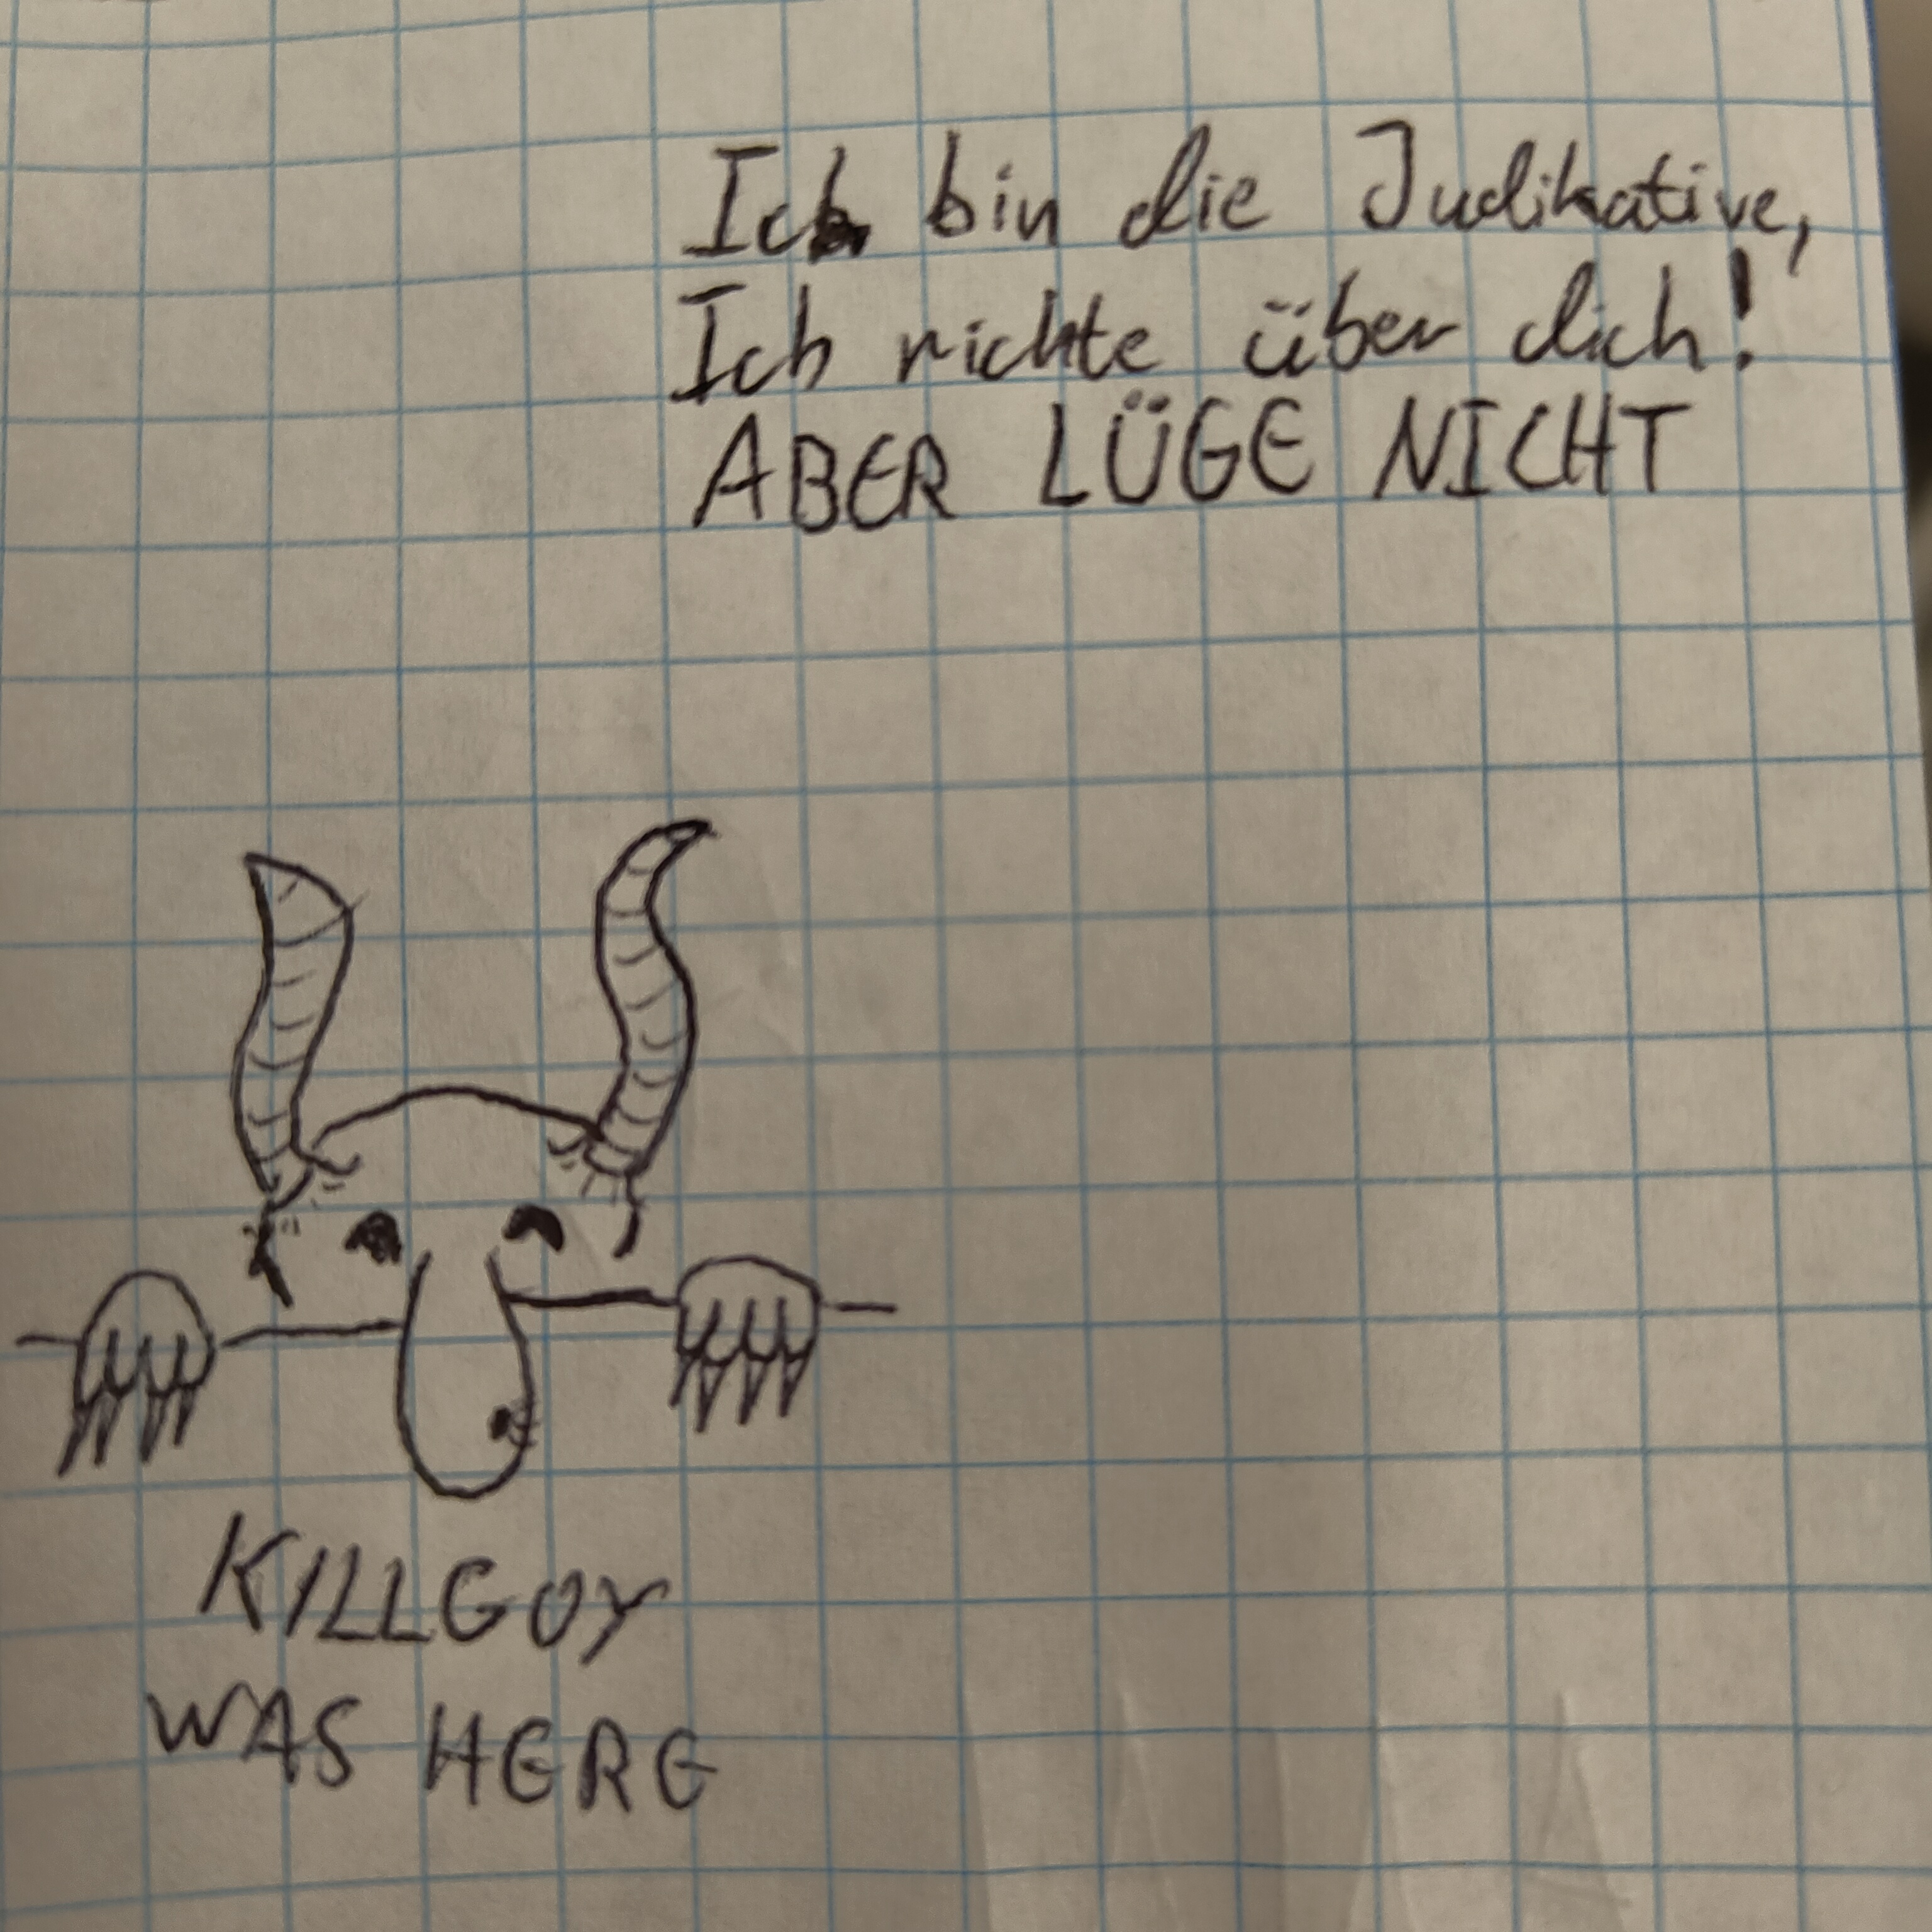 Ich bin die Judikative,
Ich richte über dich!
ABER LÜGE NICHT
KILLGOY
WAS HERE